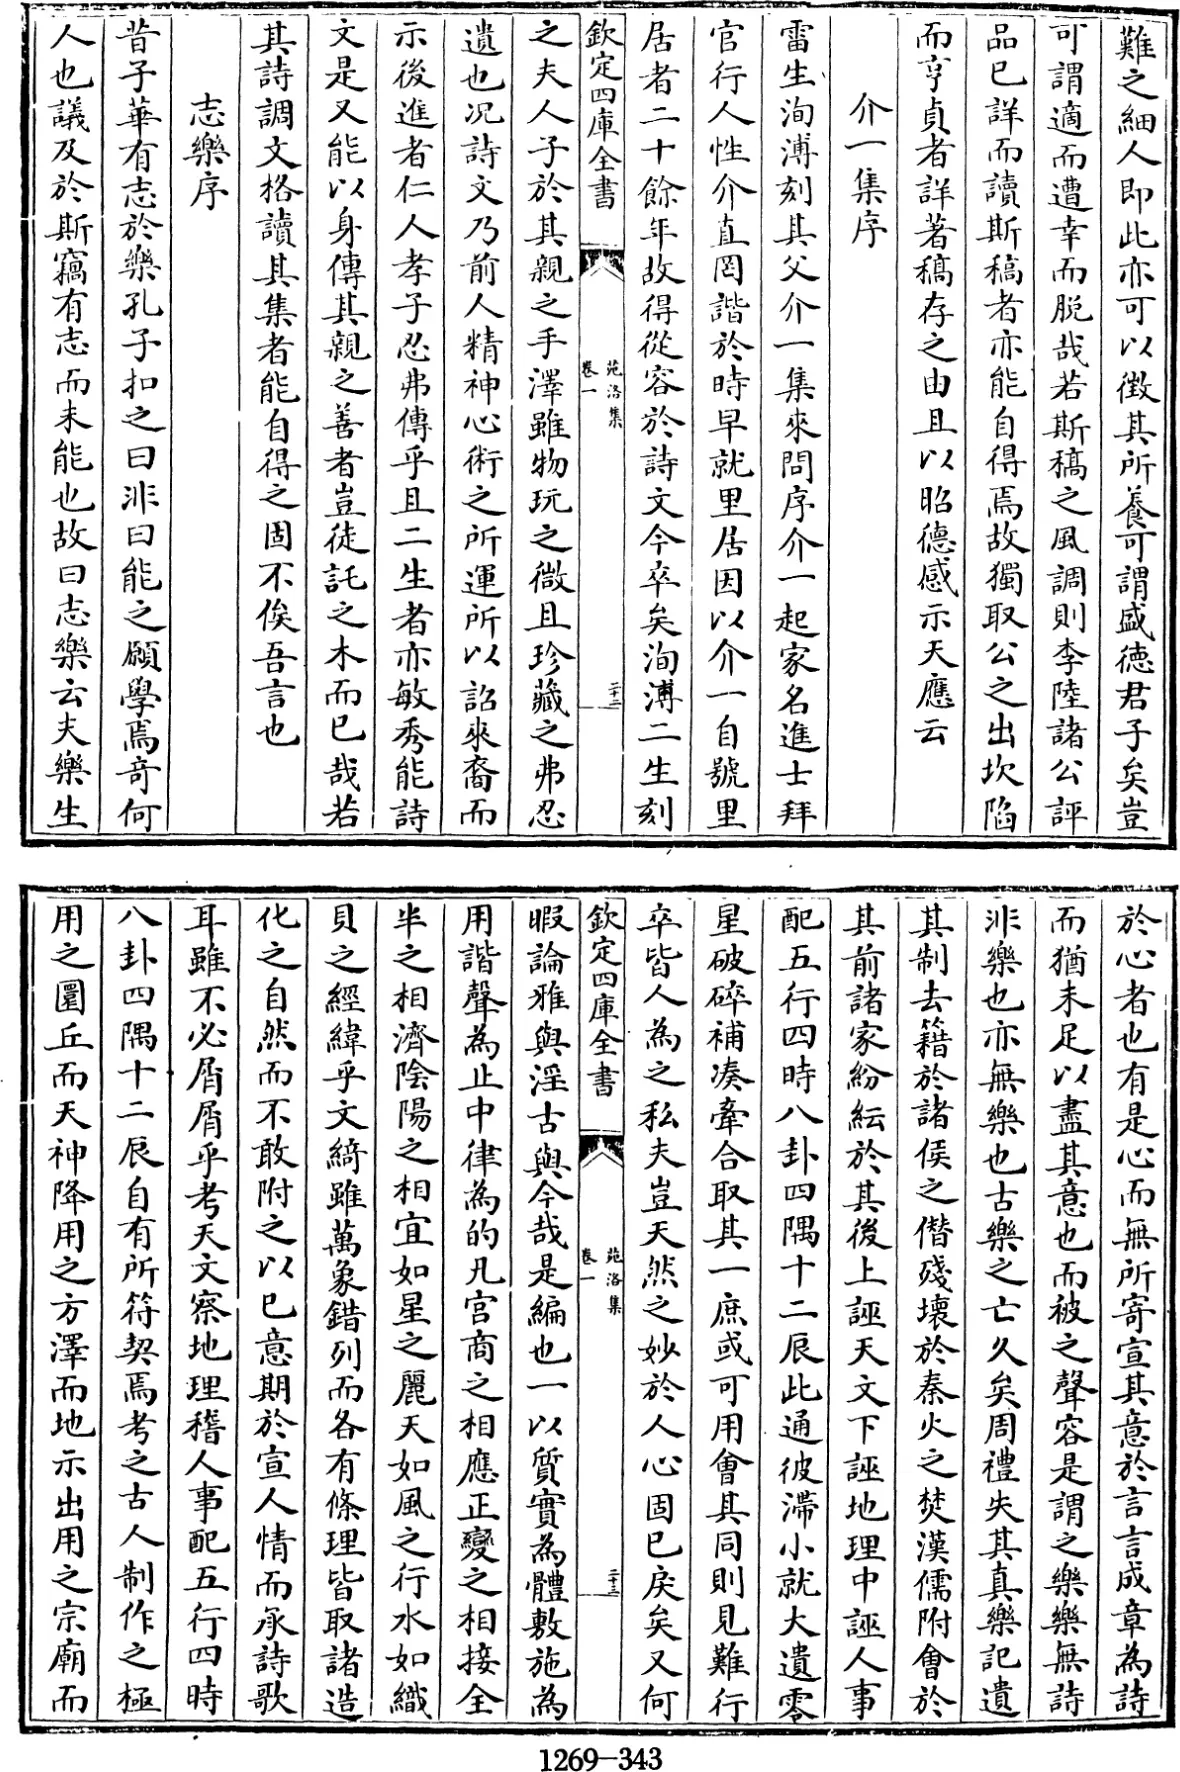 難之細人即此亦可以徴其所養可謂盛徳君子矣豈
可謂適而遭幸而脱哉若斯稿之風調則李陸諸公評
品已詳而讀斯稿者亦能自得焉故獨取公之出坎陷
而亨貞者詳著稿存之由且以昭徳感示天應云
介一集序
雷生洵溥刻其父介一集來問序介一起家名進士拜
官行人性介直罔諧於時早就里居因以介一自號里
居者二十餘年故得從容於詩文今卒矣洵溥二生刻
欽定四庫全書
苑洛集
卷一
二十二
之夫人子於其親之手澤雖物玩之微且珍藏之弗忍
遺也況詩文乃前人精神心術之所運所以詔來裔而
示後進者仁人孝子忍弗傳乎且二生者亦敏秀能詩
文是又能以身傳其親之善者豈徒託之木而已哉若
其詩調文格讀其集者能自得之固不俟吾言也
志樂序
昔子華有志於樂孔子扣之曰非曰能之願學焉竒何
人也議及於斯竊有志而未能也故曰志樂云夫樂生
於心者也有是心而無所寄宣其意於言言成章為詩
而猶未足以盡其意也而被之聲容是謂之樂樂無詩
非樂也亦無樂也古樂之亡久矣周禮失其真樂記遺
其制去籍於諸侯之僭殘壊於秦火之焚漢儒附會於
其前諸家紛紜於其後上誣天文下誣地理中誣人事
配五行四時八卦四隅十二辰此通彼滯小就大遺零
星破碎補湊牽合取其一庶或可用會其同則見難行
卒皆人為之私夫豈天然之妙於人心固已戾矣又何
欽定四庫全書
苑洛集
卷一
二十三
暇論雅與淫古與今哉是編也一以質實為體敷施為
用諧聲為止中律為的凡宮商之相應正變之相接全
半之相濟陰陽之相宜如星之麗天如風之行水如織
貝之經緯乎文綺雖萬象錯列而各有條理皆取諸造
化之自然而不敢附之以已意期於宣人情而承詩歌
耳雖不必屑屑乎考天文察地理稽人事配五行四時
八卦四隅十二辰自有所符契焉考之古人制作之極
用之圜丘而天神降用之方澤而地示出用之宗廟而
1269-343